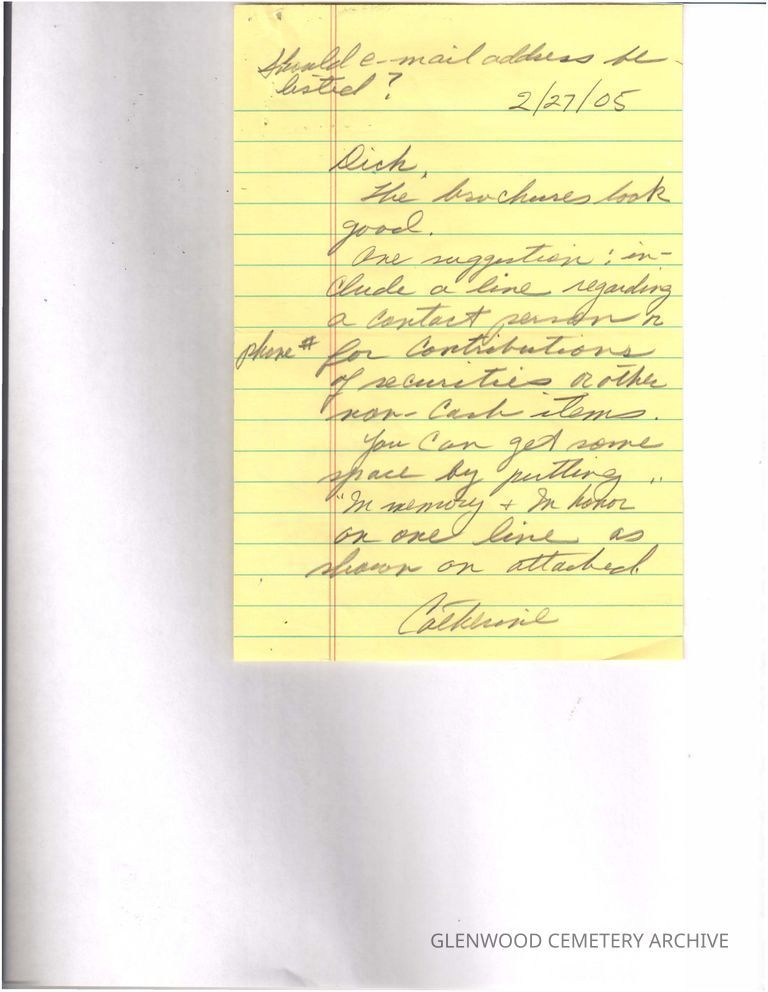 Should e-mail address be
listed?
2/27/05
Dick,
The brochures look
good.
One suggestion: in-
clude a line regarding
a contact person or
phone # for contributions
of securities or other
non-cash items.
You can get some
space by putting
"In memory + In honor"
on one line as
shown on attached.
Catherine
GLENWOOD CEMETERY ARCHIVE